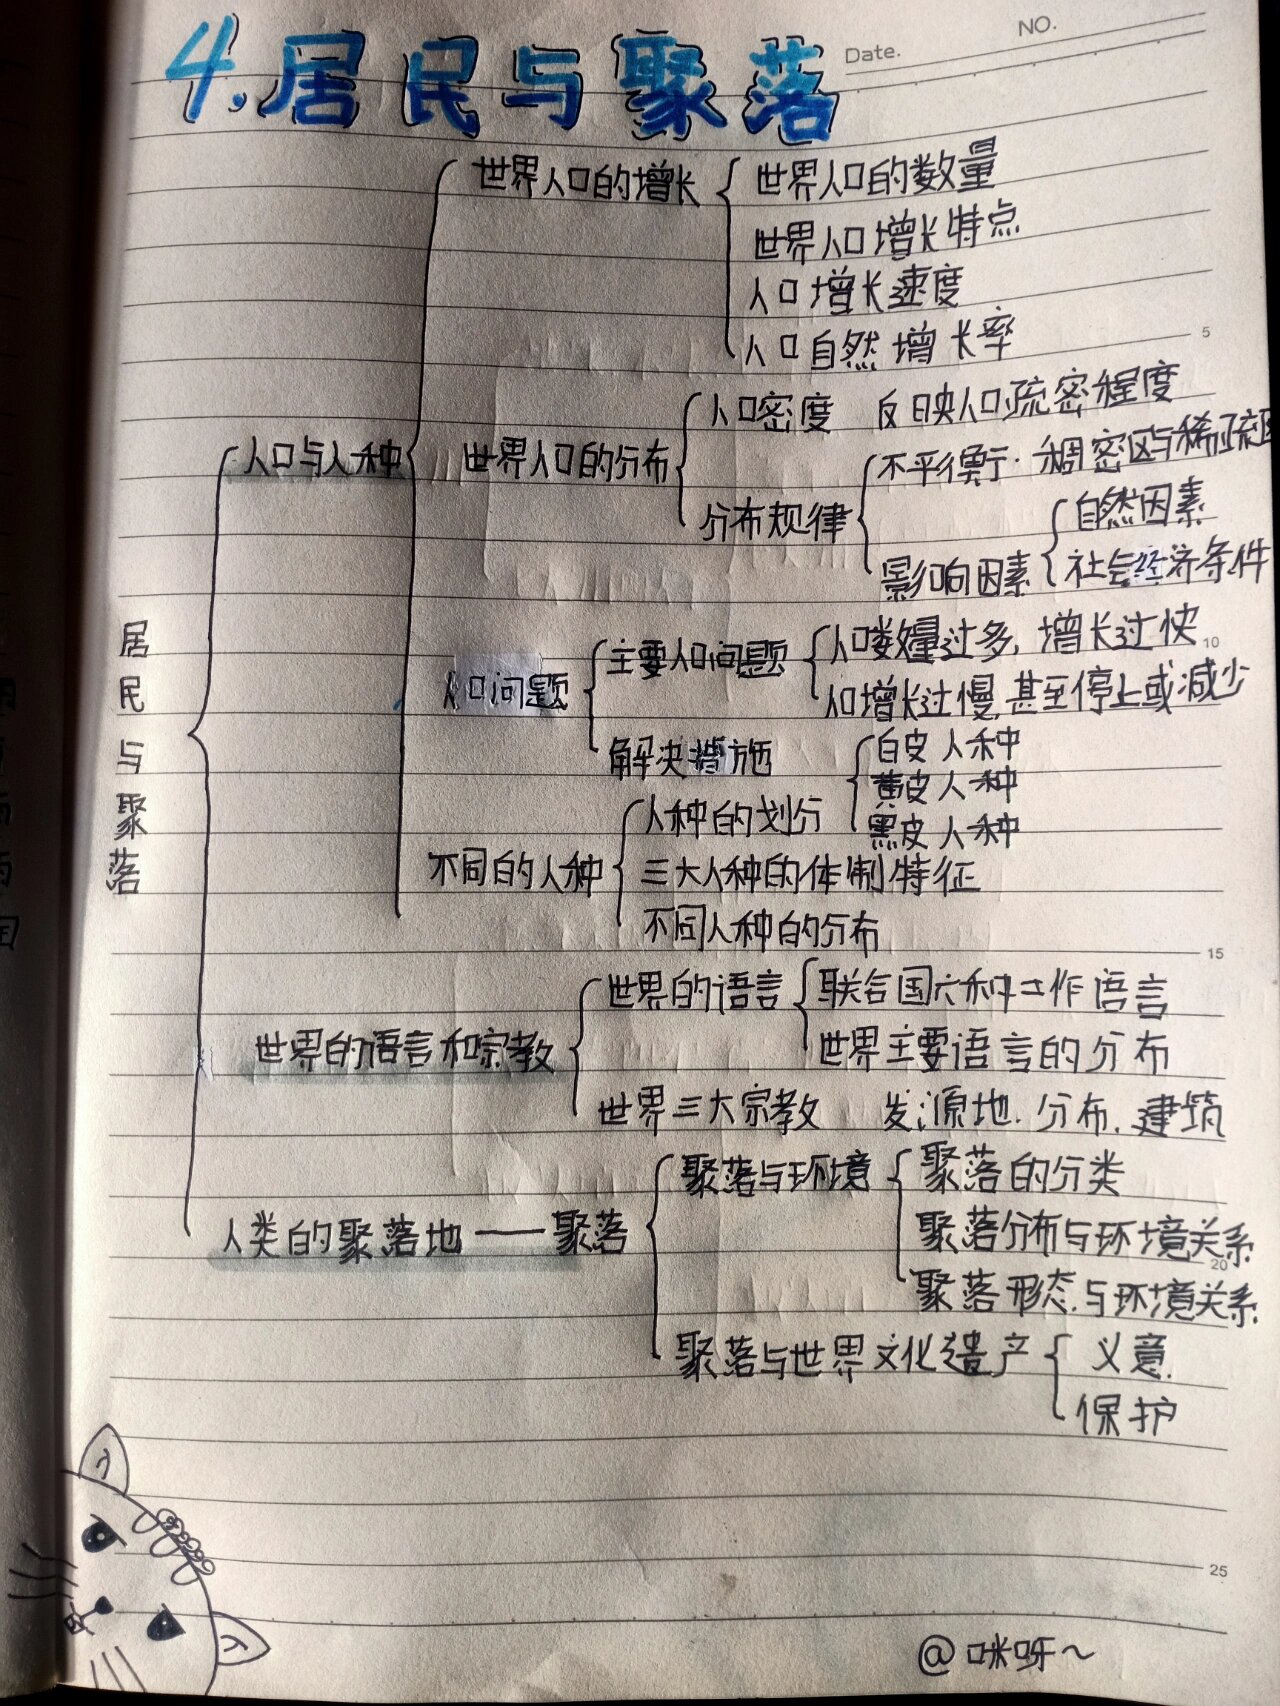 NO.
Date.
4.居民与聚落
世界人口的增长
世界人口的数量
世界人口增长特点
人口增长速度
人口自然增长率
人口密度 反映人口疏密程度
人口与人种
世界人口的分布
不平衡.稠密区与稀疏区
分布规律
自然因素
影响因素
社会经济条件
5
居民与聚落
主要人口问题
人口数量过多,增长过快
10
人口问题
人口增长过慢,甚至停止或减少
解决措施
白皮人种
黄皮人种
人种的划分
黑皮人种
不同的人种
三大人种的体制特征
不同人种的分布
15
世界的语言
联合国六种工作语言
世界的语言和宗教
世界主要语言的分布
世界三大宗教 发源地.分布.建筑
聚落与环境
聚落的分类
人类的聚落地——聚落
聚落分布与环境关系
20
聚落形态与环境关系
聚落与世界文化遗产
义意.
保护
25
@咪呀~